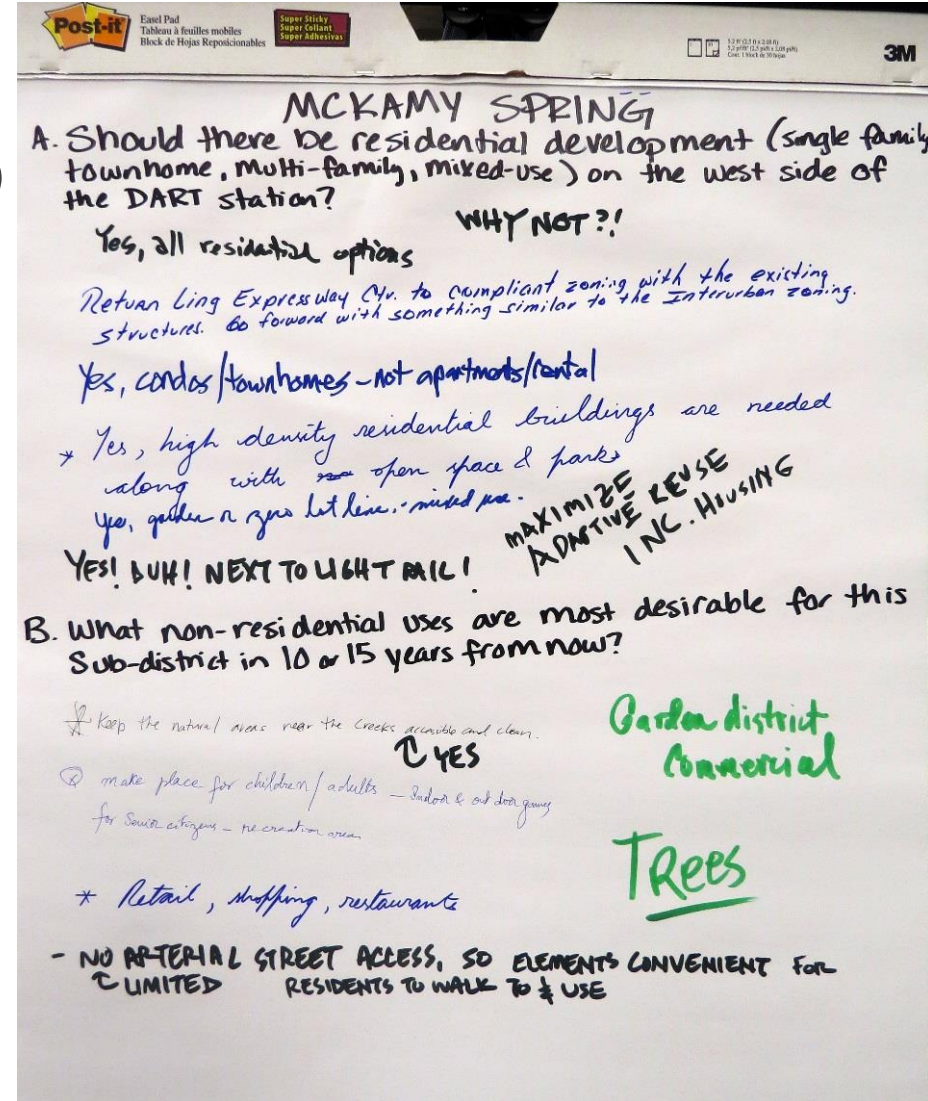 Post-it
Easel Pad
Tableau à feuilles mobiles
Block de Hojas Reposicionables
Super Sticky
Super Collant
Super Adhesivas
3M
MCKAMY SPRING
A. Should there be residential development (single family
townhome, multi-family, mixed-use) on the west side of
the DART station?
WHY NOT?!
Yes, all residential options
Return Ling Expressway Ctr. to compliant zoning with the existing
structures. Go forward with something similar to the Interurban zoning.
Yes, condos/townhomes - not apartments/rental
* Yes, high density residential buildings are needed
along with open space & parks
yes, garden or zero lot line - mixed use.
MAXIMIZE
ADAPTIVE REUSE
INC. HOUSING
YES! DUH! NEXT TO LIGHT RAIL!
B. What non-residential uses are most desirable for this
Sub-district in 10 or 15 years from now?
Keep the natural areas near the creeks accessible and clean.
↑ YES
Garden district
Commercial
make place for children/adults - Indoor & out door games
for Senior citizens - recreation area
Trees
* Retail, shopping, restaurants
- NO ARTERIAL STREET ACCESS, SO ELEMENTS CONVENIENT FOR
↑ LIMITED RESIDENTS TO WALK TO & USE